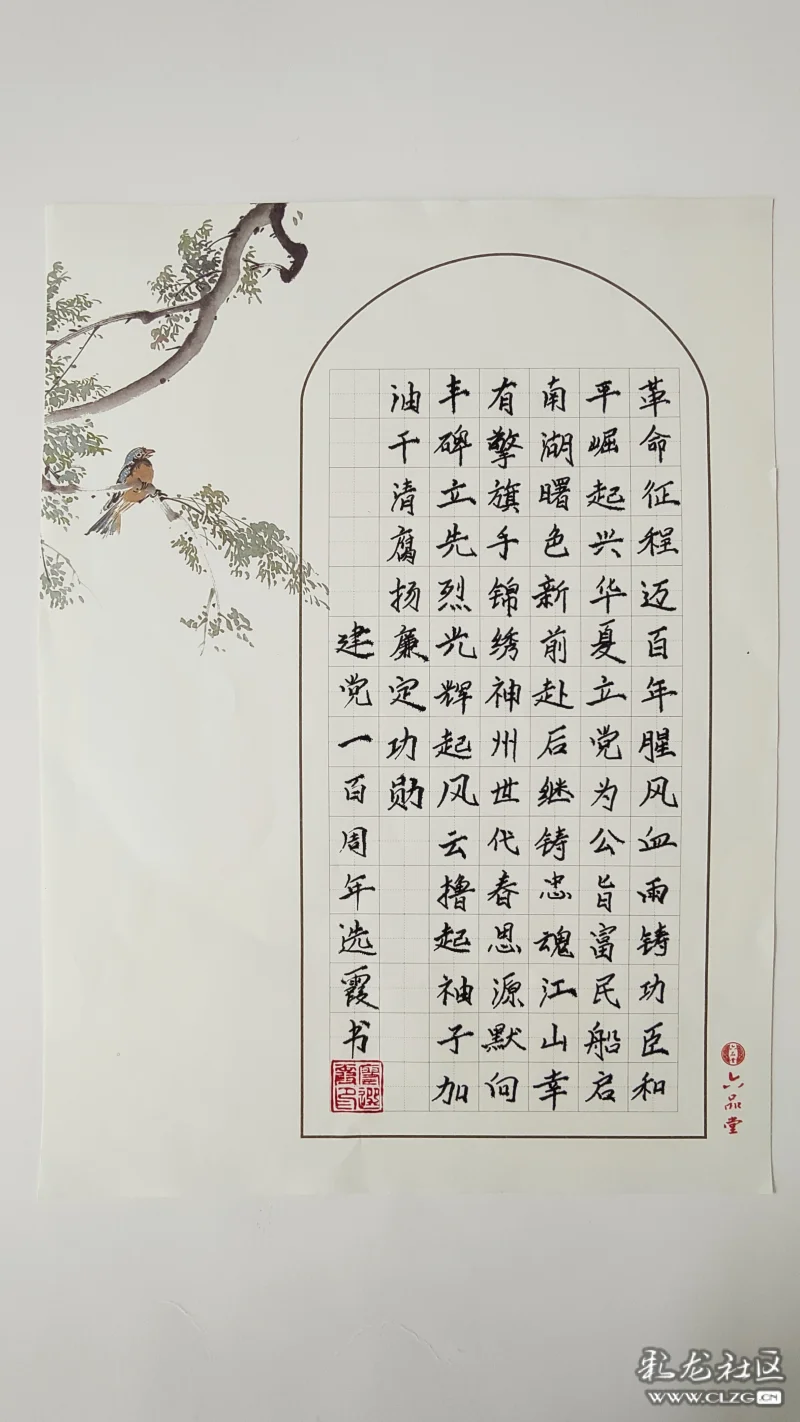 革命征程迈百年腥风血雨铸功臣和
平崛起兴华夏立党为公旨富民船启
南湖曙色新前赴后继铸忠魂江山幸
有擎旗手锦绣神州世代春思源默向
丰碑立先烈光辉起风云撸起袖子加
油干清腐扬廉定功勋
建党一百周年选霞书
六品堂
彩龙社区
WWW.CLZG.CN